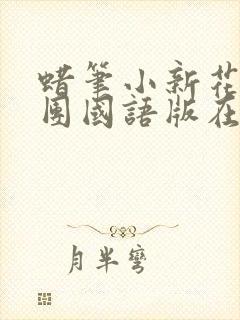 蜡筆小新花
團國語版在
月半彎